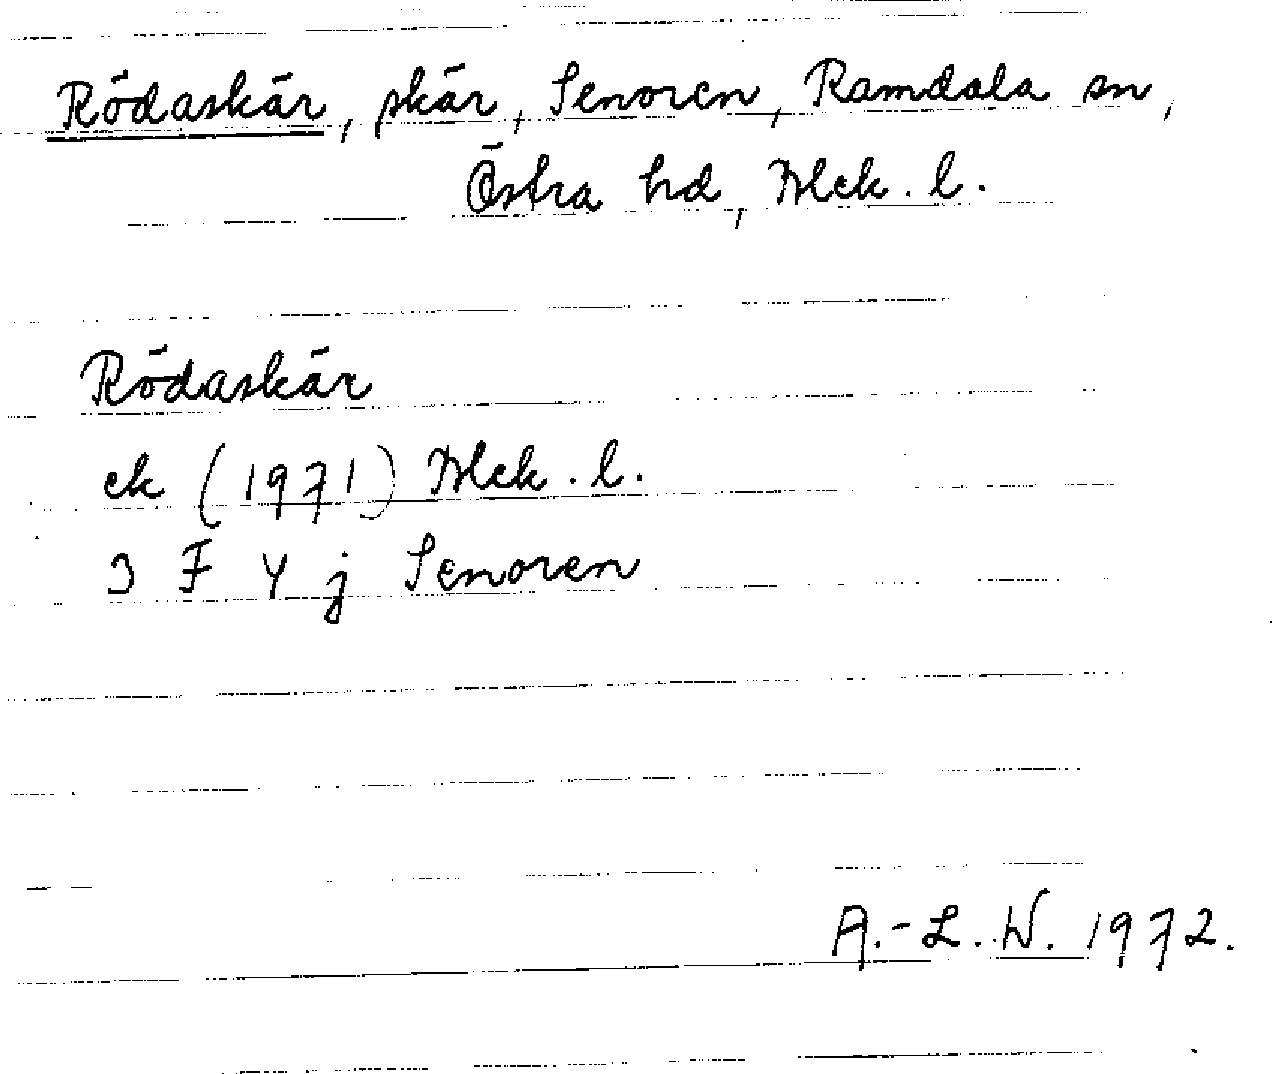 Rödaskär, skär, Senoren, Ramdala sn,
Östra hd, Blek. l.
Rödaskär
ek (1971) Blek. l.
3 F Y j Senoren
A.-L. W. 1972.